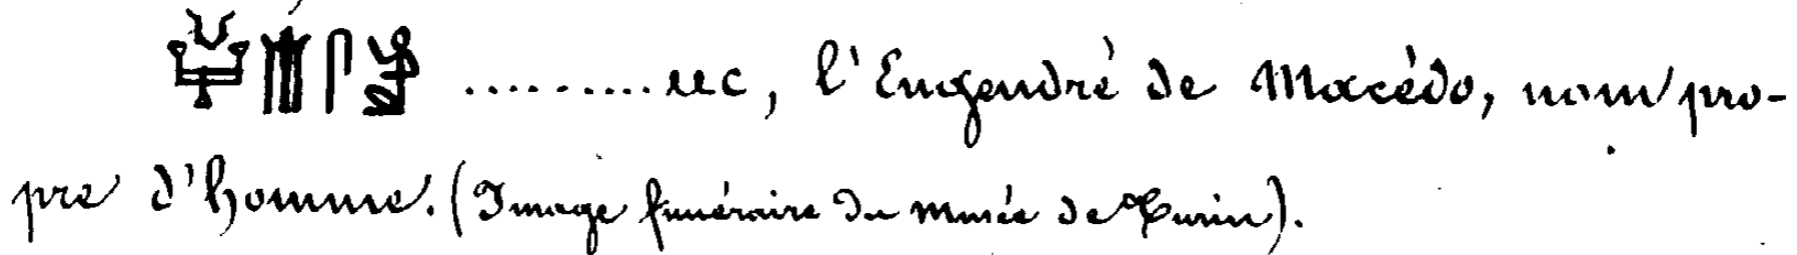 .........ⲙⲥ, l'Engendré de Macédo, nom pro-
pre d'homme. (Image funéraire du musée de Turin).